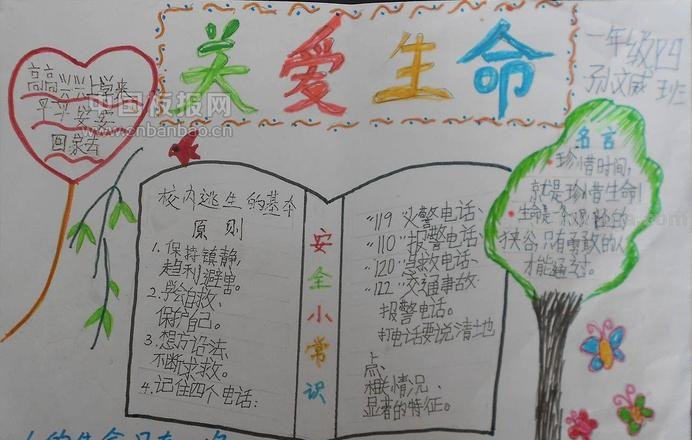 关爱生命
一年级四班
孙文威
高高兴兴上学来
平平安安
回家去
中国板报网
www.cnbanbao.cn
校内逃生的基本
原则
1.保持镇静,
趋利避害。
2.学会自救,
保护自己。
3.想方设法
不断求救。
4.记住四个电话:
安全小常识
“119”火警电话、
“110”报警电话、
“120”急救电话、
“122”交通事故
报警电话。
打电话要说清土地
点、
相关情况、
显著的特征。
名言
珍惜时间,
就是珍惜生命!
峡谷,只有勇敢的人
才能通过。